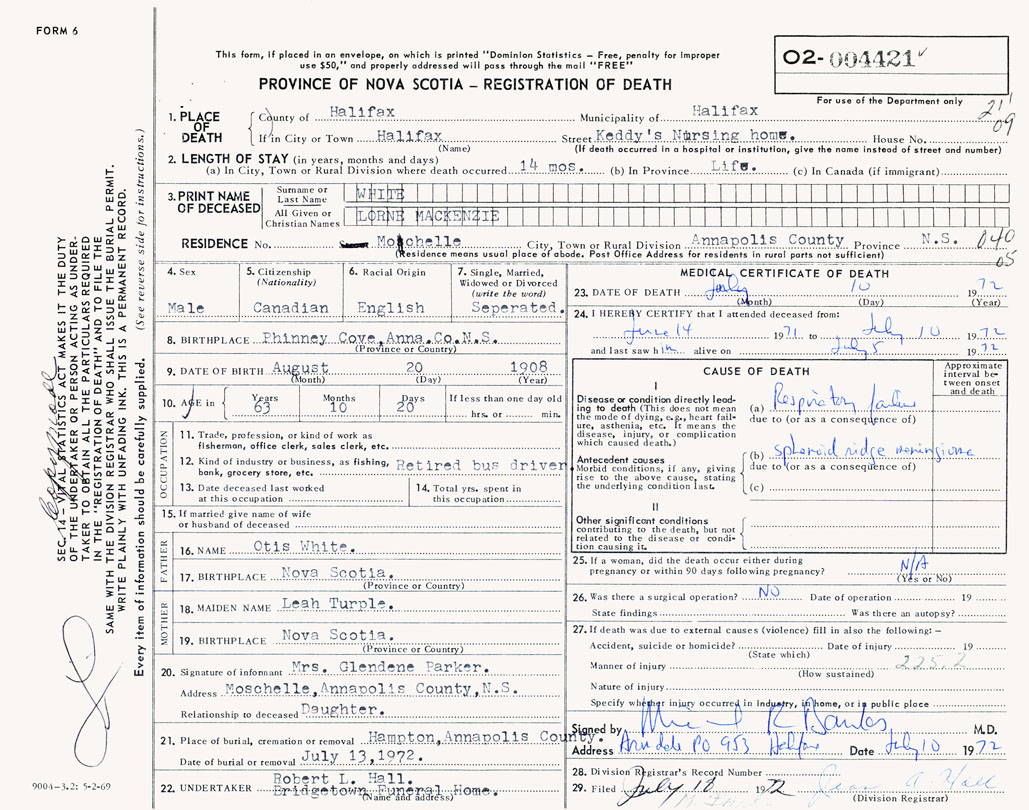 FORM 6
This form, if placed in an envelope, on which is printed "Dominion Statistics – Free, penalty for improper
use $50," and properly addressed will pass through the mail "FREE"
PROVINCE OF NOVA SCOTIA – REGISTRATION OF DEATH
02-004421
For use of the Department only
211
09
1. PLACE OF DEATH
County of Halifax Municipality of Halifax
If in City or Town Halifax Street Keddy's Nursing home. House No.
(Name) (If death occurred in a hospital or institution, give the name instead of street and number)
2. LENGTH OF STAY (in years, months and days)
(a) In City, Town or Rural Division where death occurred 14 mos. (b) In Province Life. (c) In Canada (if immigrant)
3. PRINT NAME OF DECEASED
Surname or Last Name WHITE
All Given or Christian Names LORNE MACKENZIE
RESIDENCE No. Moschelle City, Town or Rural Division Annapolis County Province N.S. 040
(Residence means usual place of abode. Post Office Address for residents in rural parts not sufficient) 05
4. Sex
Male
5. Citizenship
(Nationality)
Canadian
6. Racial Origin
English
7. Single, Married,
Widowed or Divorced
(write the word)
Seperated.
8. BIRTHPLACE Phinney Cove, Anna.Co.N.S.
(Province or Country)
9. DATE OF BIRTH August 20 1908
(Month) (Day) (Year)
10. AGE in Years Months Days If less than one day old
63 10 20 hrs. or min.
OCCUPATION
11. Trade, profession, or kind of work as
fisherman, office clerk, sales clerk, etc.
12. Kind of industry or business, as fishing,
bank, grocery store, etc. Retired bus driver.
13. Date deceased last worked
at this occupation
14. Total yrs. spent in
this occupation
15. If married give name of wife
or husband of deceased
FATHER
16. NAME Otis White.
17. BIRTHPLACE Nova Scotia.
(Province or Country)
MOTHER
18. MAIDEN NAME Leah Turple.
19. BIRTHPLACE Nova Scotia.
(Province or Country)
20. Signature of informant Mrs. Glendene Parker.
Address Moschelle, Annapolis County, N.S.
Relationship to deceased Daughter.
21. Place of burial, cremation or removal Hampton, Annapolis County.
Date of burial or removal July 13, 1972.
Robert L. Hall.
22. UNDERTAKER Bridgetown Funeral Home.
(Name and address)
MEDICAL CERTIFICATE OF DEATH
23. DATE OF DEATH July 10 1972
(Month) (Day) (Year)
24. I HEREBY CERTIFY that I attended deceased from:
June 14 1971 to July 10 1972
and last saw him alive on July 5 1972
CAUSE OF DEATH
Approximate
interval be-
tween onset
and death
I
Disease or condition directly lead-
ing to death (This does not mean
the mode of dying, e.g., heart fail-
ure, asthenia, etc. It means the
disease, injury, or complication
which caused death.)
(a) Respiratory failure
due to (or as a consequence of)
Antecedent causes
Morbid conditions, if any, giving
rise to the above cause, stating
the underlying condition last.
(b) sphenoid ridge meningioma
due to (or as a consequence of)
(c)
II
Other significant conditions
contributing to the death, but not
related to the disease or condi-
tion causing it.
25. If a woman, did the death occur either during
pregnancy or within 90 days following pregnancy? N/A
(Yes or No)
26. Was there a surgical operation? NO Date of operation 19
State findings Was there an autopsy?
27. If death was due to external causes (violence) fill in also the following: –
Accident, suicide or homicide? Date of injury 19
(State which)
Manner of injury 225.2
(How sustained)
Nature of injury
Specify whether injury occurred in industry, in home, or in public place
Signed by M.D.
Address Armdale PO 953 Halifax Date July 10 1972
28. Division Registrar's Record Number
29. Filed July 1972
(Division Registrar)
SEC. 14 – VITAL STATISTICS ACT MAKES IT THE DUTY
OF THE UNDERTAKER OR PERSON ACTING AS UNDER-
TAKER TO OBTAIN ALL THE PARTICULARS REQUIRED
IN THE "REGISTRATION OF DEATH" AND TO FILE THE
SAME WITH THE DIVISION REGISTRAR WHO SHALL ISSUE THE BURIAL PERMIT.
WRITE PLAINLY WITH UNFADING INK. THIS IS A PERMANENT RECORD.
Every item of information should be carefully supplied. (See reverse side for instructions.)
9004–3.2: 5-2-69